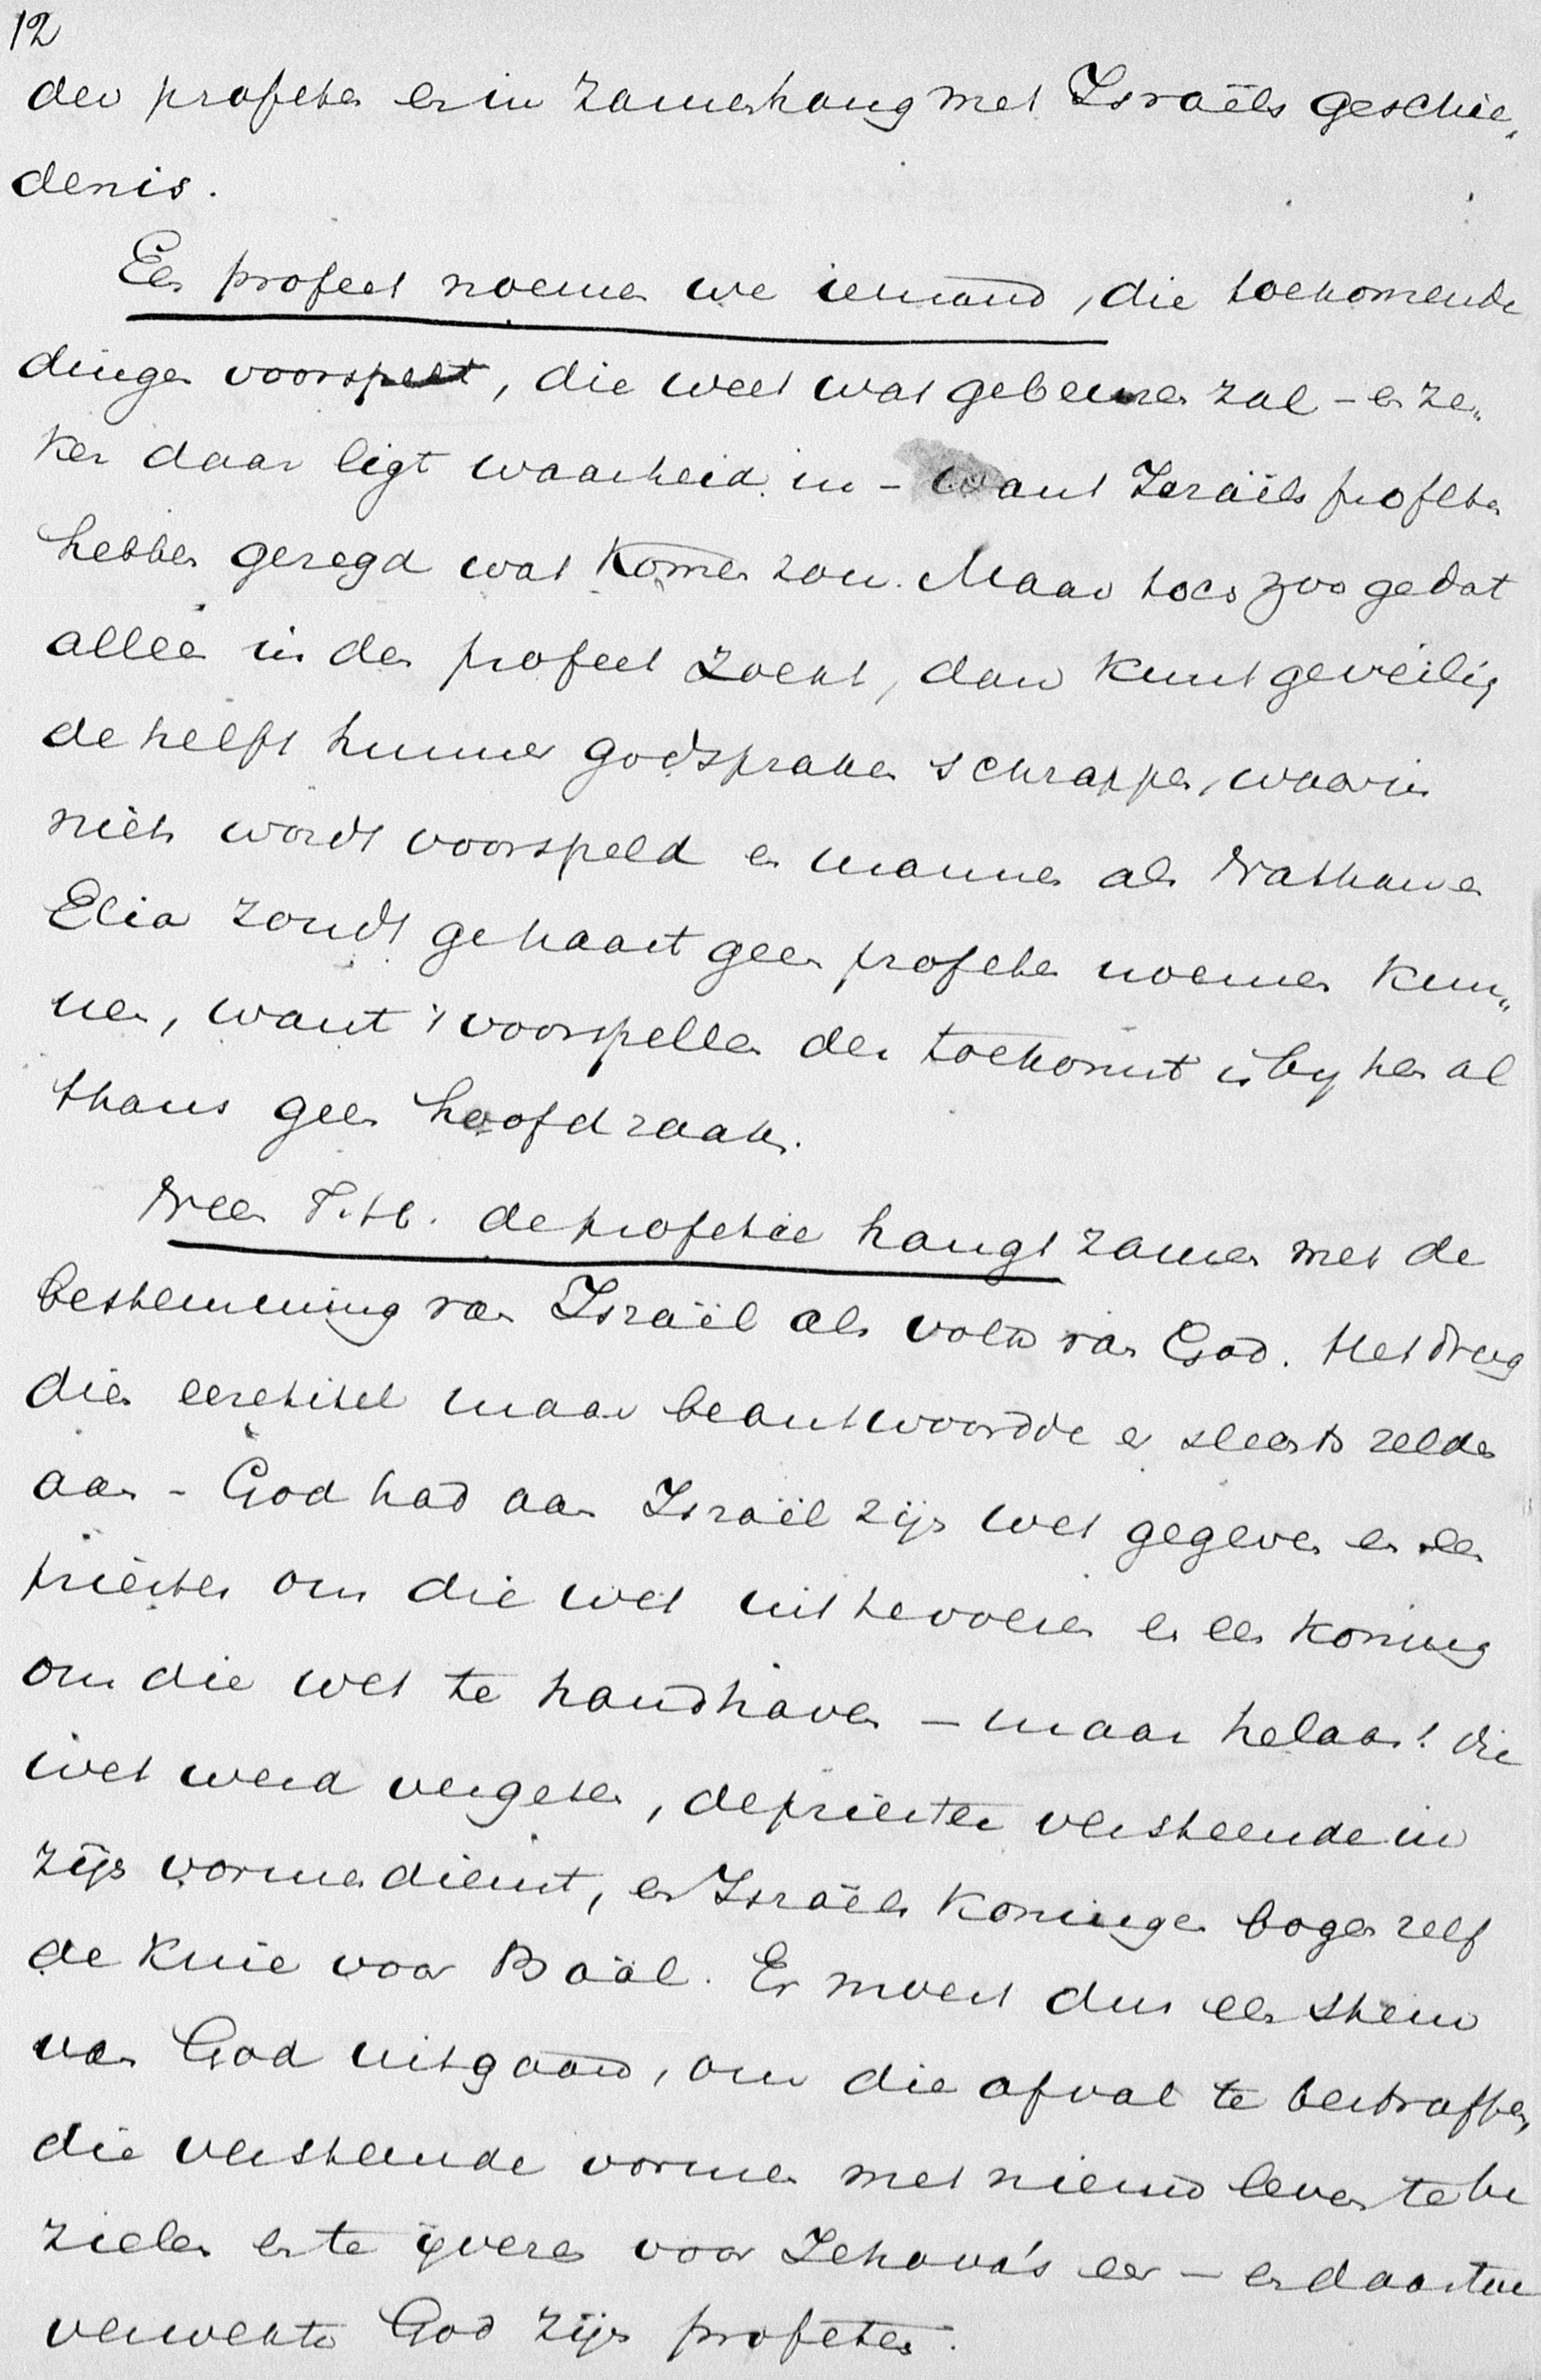 12
der profeten en in zamenhang met Israëls geschie„
denis.
Een profeet noemen we iemand, die toekomende
dingen voorspelt, die weet wat gebeuren zal – en ze„
ker daar ligt waarheid in – want Israëls profeten
hebben gezegd wat komen zou. Maar toch zoo ge dat
alleen in den profeet zoekt, dan kunt ge veilig
de helft hunner godspraken schrappen, waarin
niets wordt voorspeld en mannen als Nathan en
Elia zoudt ge haast geen profeten noemen kun„
nen, want 't voorspellen der toekomst is by hen al
thans geen hoofdzaak.
Neen T. H. de profetie hangt zamen met de
bestemming van Israël als volk van God. Het droeg
dien eeretitel maar beantwoordde er slechts zelden
aan – God had aan Israël zijn wet gegeven en een
priester om die wet uit te voeren en een koning
om die wet te handhaven – maar helaas! die
wet werd vergeten, de priester versteende in
zijn vormendienst, en Israëls koningen bogen zelf
de knie voor Baäl. Er moest dus een stem
van God uitgaan, om die afval te bestraffen,
die versteende vormen met nieuw leven te be
zielen en te ijveren voor Jehova's eer – en daartoe
verwekte God zijn profeten.